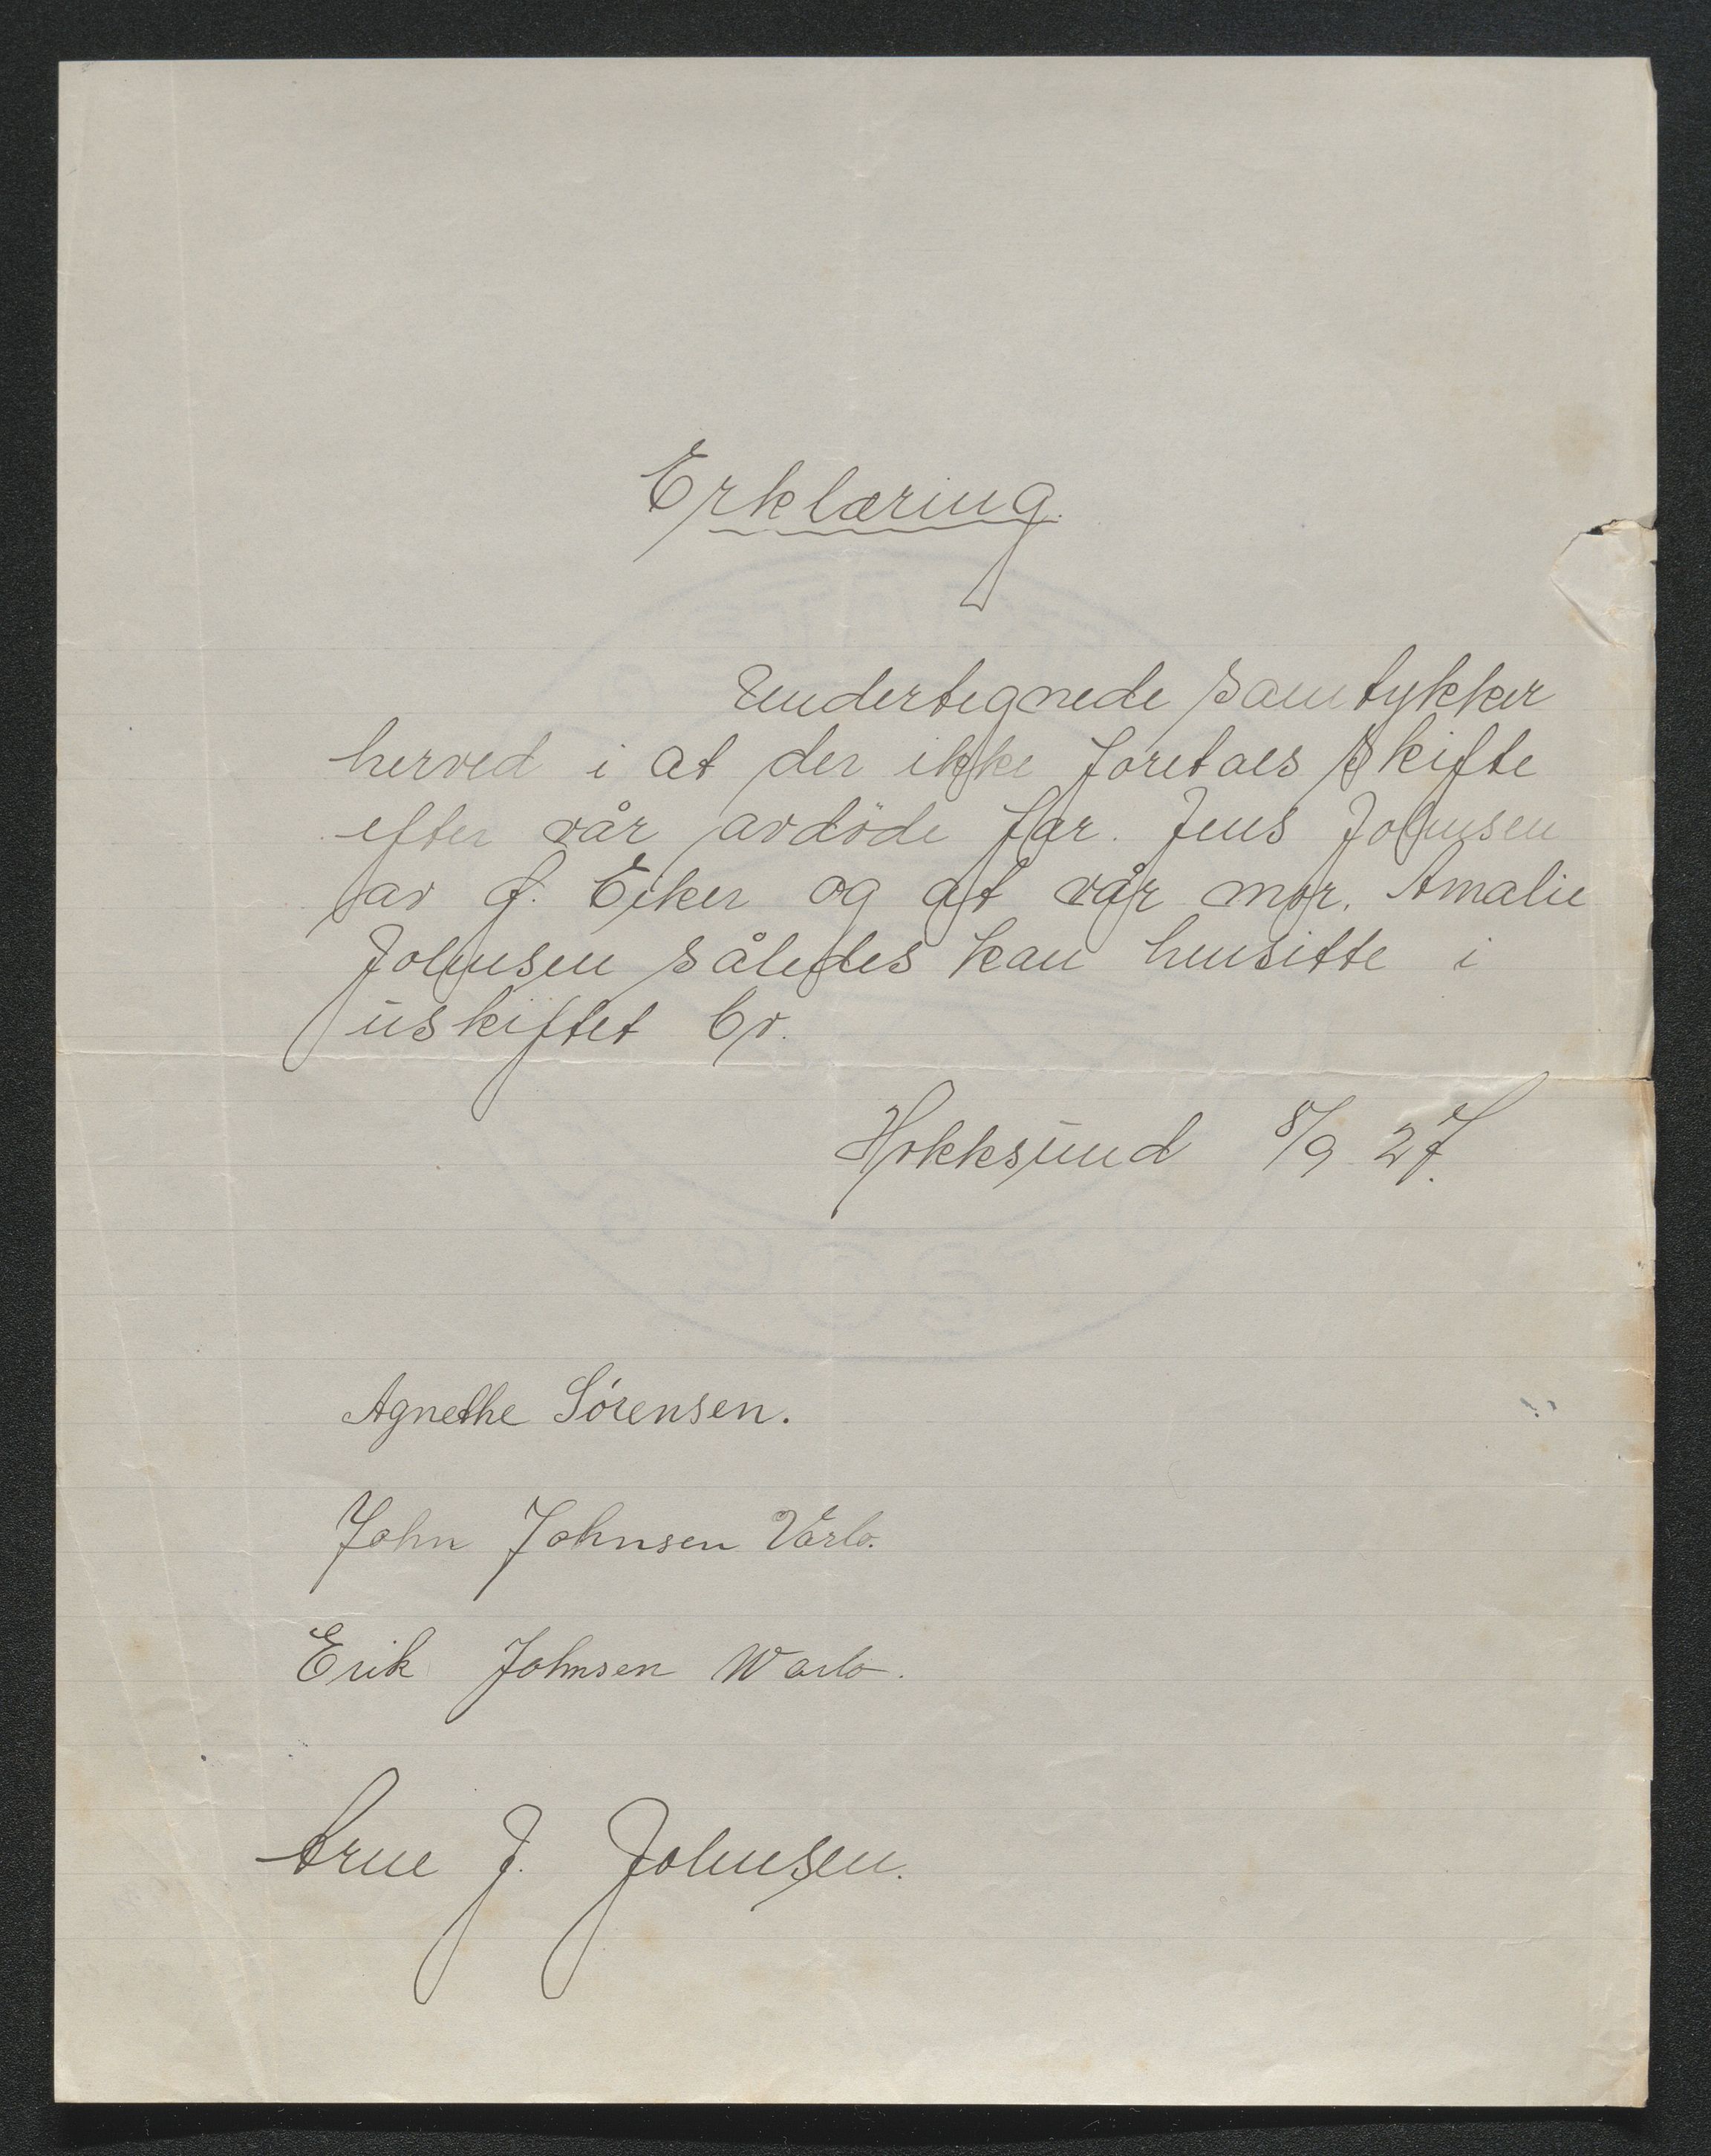 Erklæring.
Undertegnede samtykker
herved i at der ikke foretaes skifte
efter vår avdöde far. Jens Johnsen
av Ø. Eiker og at vår mor. Amalie
Johnsen således kan hensitte i
uskiftet bo.
Hokksund 8/9 27.
Agnethe Sörensen.
John Johnsen Varlo.
Erik Johnsen Warlo.
Arne J. Johnsen.